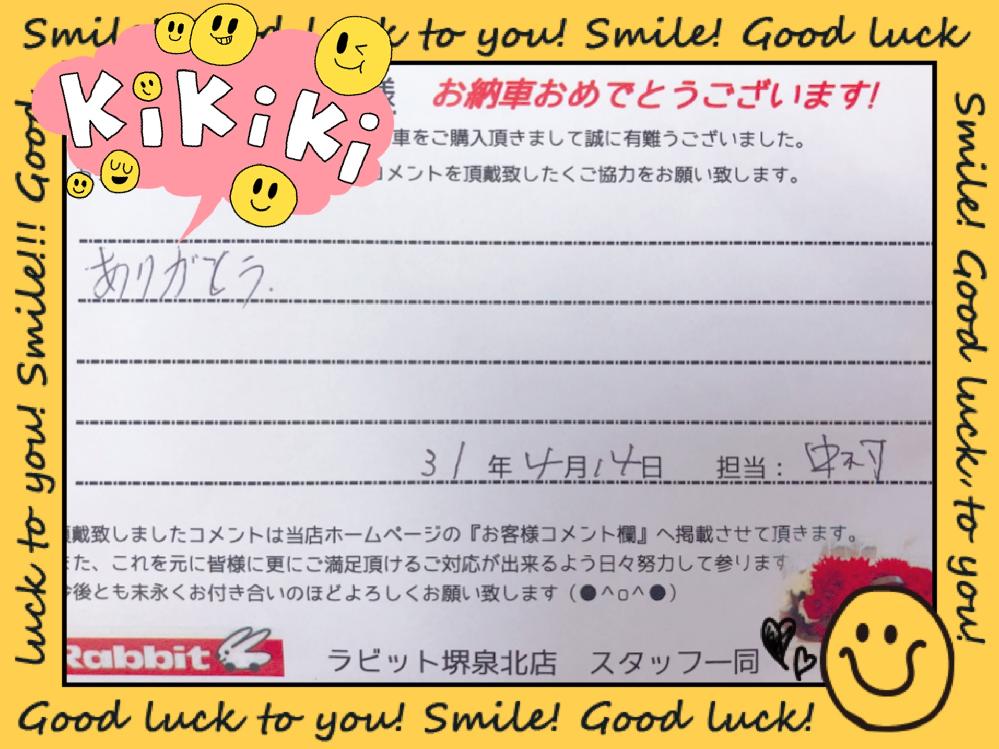 Smile! Good luck to you! Smile! Good luck
KiKiKi
様 お納車おめでとうございます!
車をご購入頂きまして誠に有難うございました。
コメントを頂戴致したくご協力をお願い致します。
ありがとう.
31年4月14日 担当：中村
頂戴致しましたコメントは当店ホームページの『お客様コメント欄』へ掲載させて頂きます。
また、これを元に皆様に更にご満足頂けるご対応が出来るよう日々努力して参ります
今後とも末永くお付き合いのほどよろしくお願い致します（●^o^●）
Rabbit ラビット堺泉北店 スタッフ一同
luck to you! Smile!!! Good
Smile! Good luck to you!
Good luck to you! Smile! Good luck!